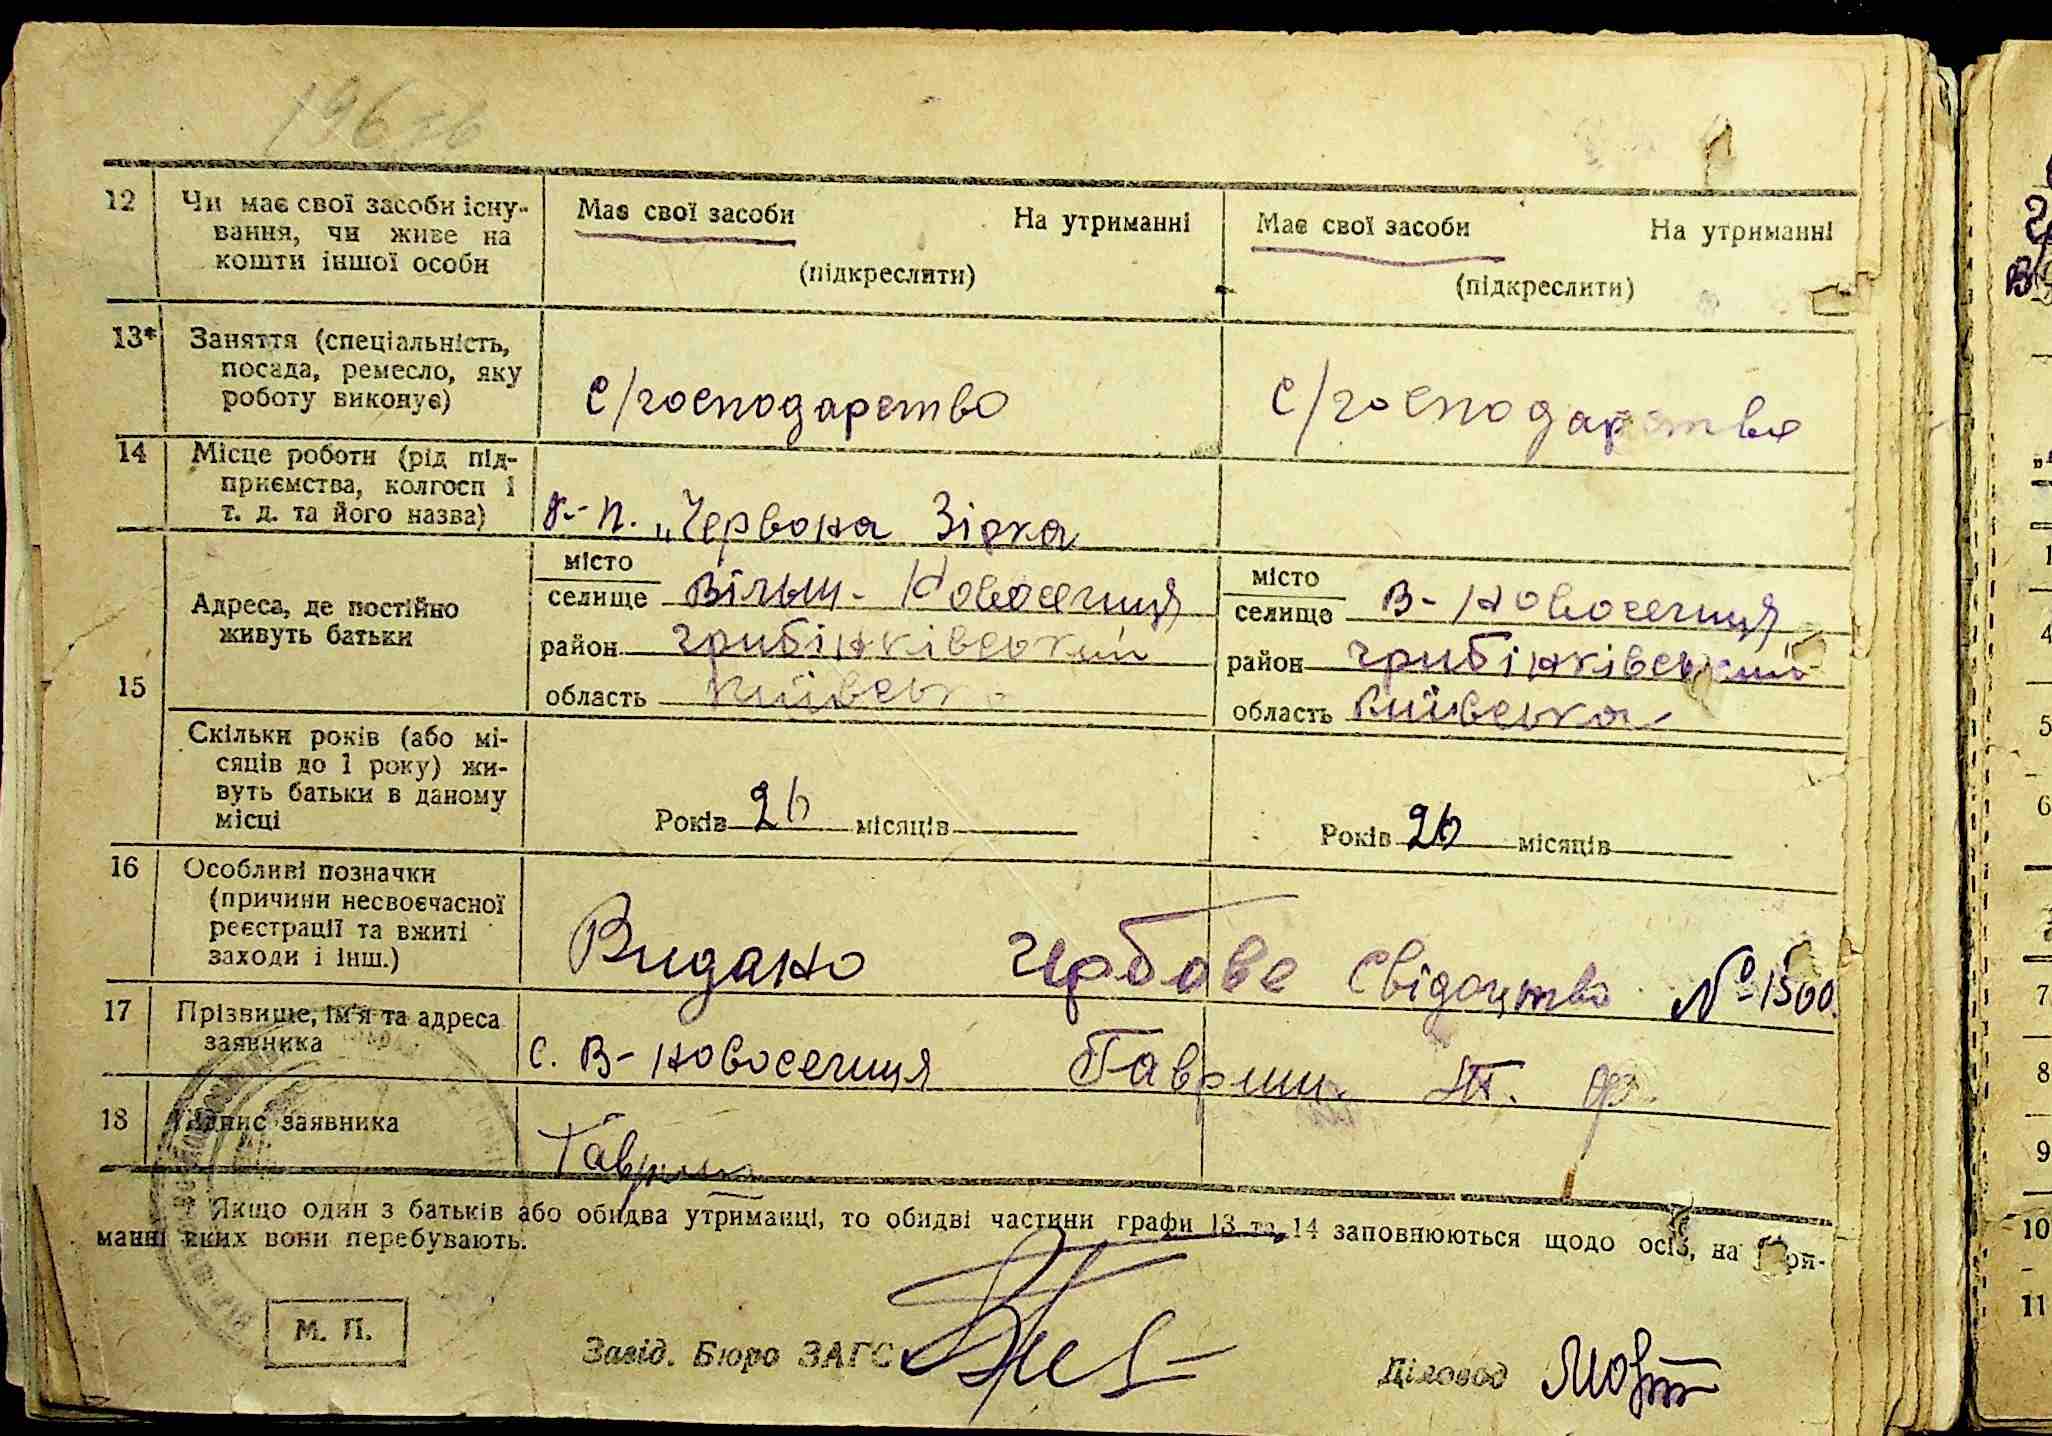 12 Чи має свої засоби існу- Має свої засоби На утриманні Має свої засоби На утриманні
вання, чи живе на
кошти іншої особи (підкреслити) (підкреслити)
13* Заняття (спеціальність,
посада, ремесло, яку
роботу виконує) с/господарство с/господарство
14 Місце роботи (рід під-
приємства, колгосп і
т. д. та його назва) к-п. „Червона Зірка
15 Адреса, де постійно
живуть батьки
місто
селище Вільш- Новоселиця
район грибінківський
область Київська
місто
селище В- Новоселиця
район грибінківський
область Київська
Скільки років (або мі-
сяців до 1 року) жи-
вуть батьки в даному
місці
Років 26 місяців Років 26 місяців
16 Особливі позначки
(причини несвоєчасної
реєстрації та вжиті
заходи і інш.)
Видано гербове свідоцтво № 1500.
17 Прізвище, ім'я та адреса
заявника
с. В- Новоселиця Гавриш
18 Напис заявника Гавриш
* Якщо один з батьків або обидва утриманці, то обидві частини графи 13 та 14 заповнюються щодо осіб, на утри-
манні яких вони перебувають.
М. П.
Завід. Бюро ЗАГС Діловод